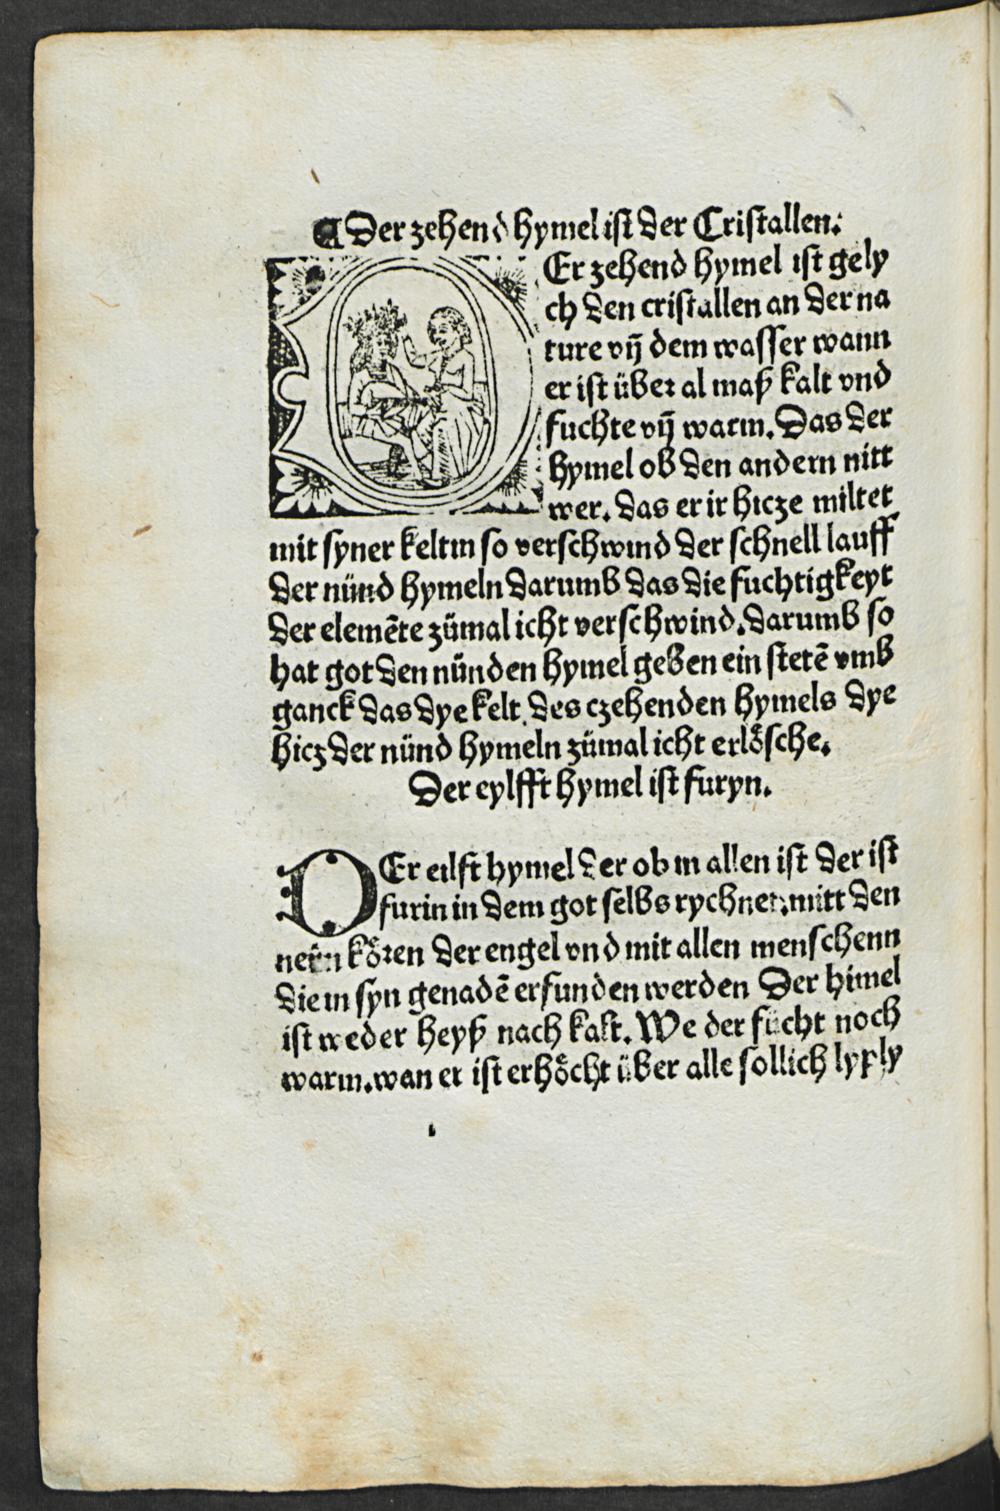 ¶ Der zehend hymel ist der Cristallen.
DEr zehend hymel ist gely
ch den cristallen an der na
ture vn̄ dem wasser wann
er ist über al maß kalt vnd
fuchte vn̄ warm. Das der
hymel ob den andern nitt
wer. das er ir hicze miltet
mit syner keltin so verschwind der schnell lauff
der nünd hymeln darumb das die fuchtigkeyt
der elemēte zümal icht verschwind. darumb so
hat got den nünden hymel geben ein stetē vmb
ganck das dye kelt des czehenden hymels dye
hicz der nünd hymeln zümal icht erlösche.
Der eylfft hymel ist furyn.
DEr eilft hymel der ob in allen ist der ist
furin in dem got selbs rychnet. mitt den
neün kören der engel vnd mit allen menschenn
die in syn genadē erfunden werden Der himel
ist weder heyß nach kalt. We der fücht noch
warm. wan er ist erhöcht über alle sollich lyply